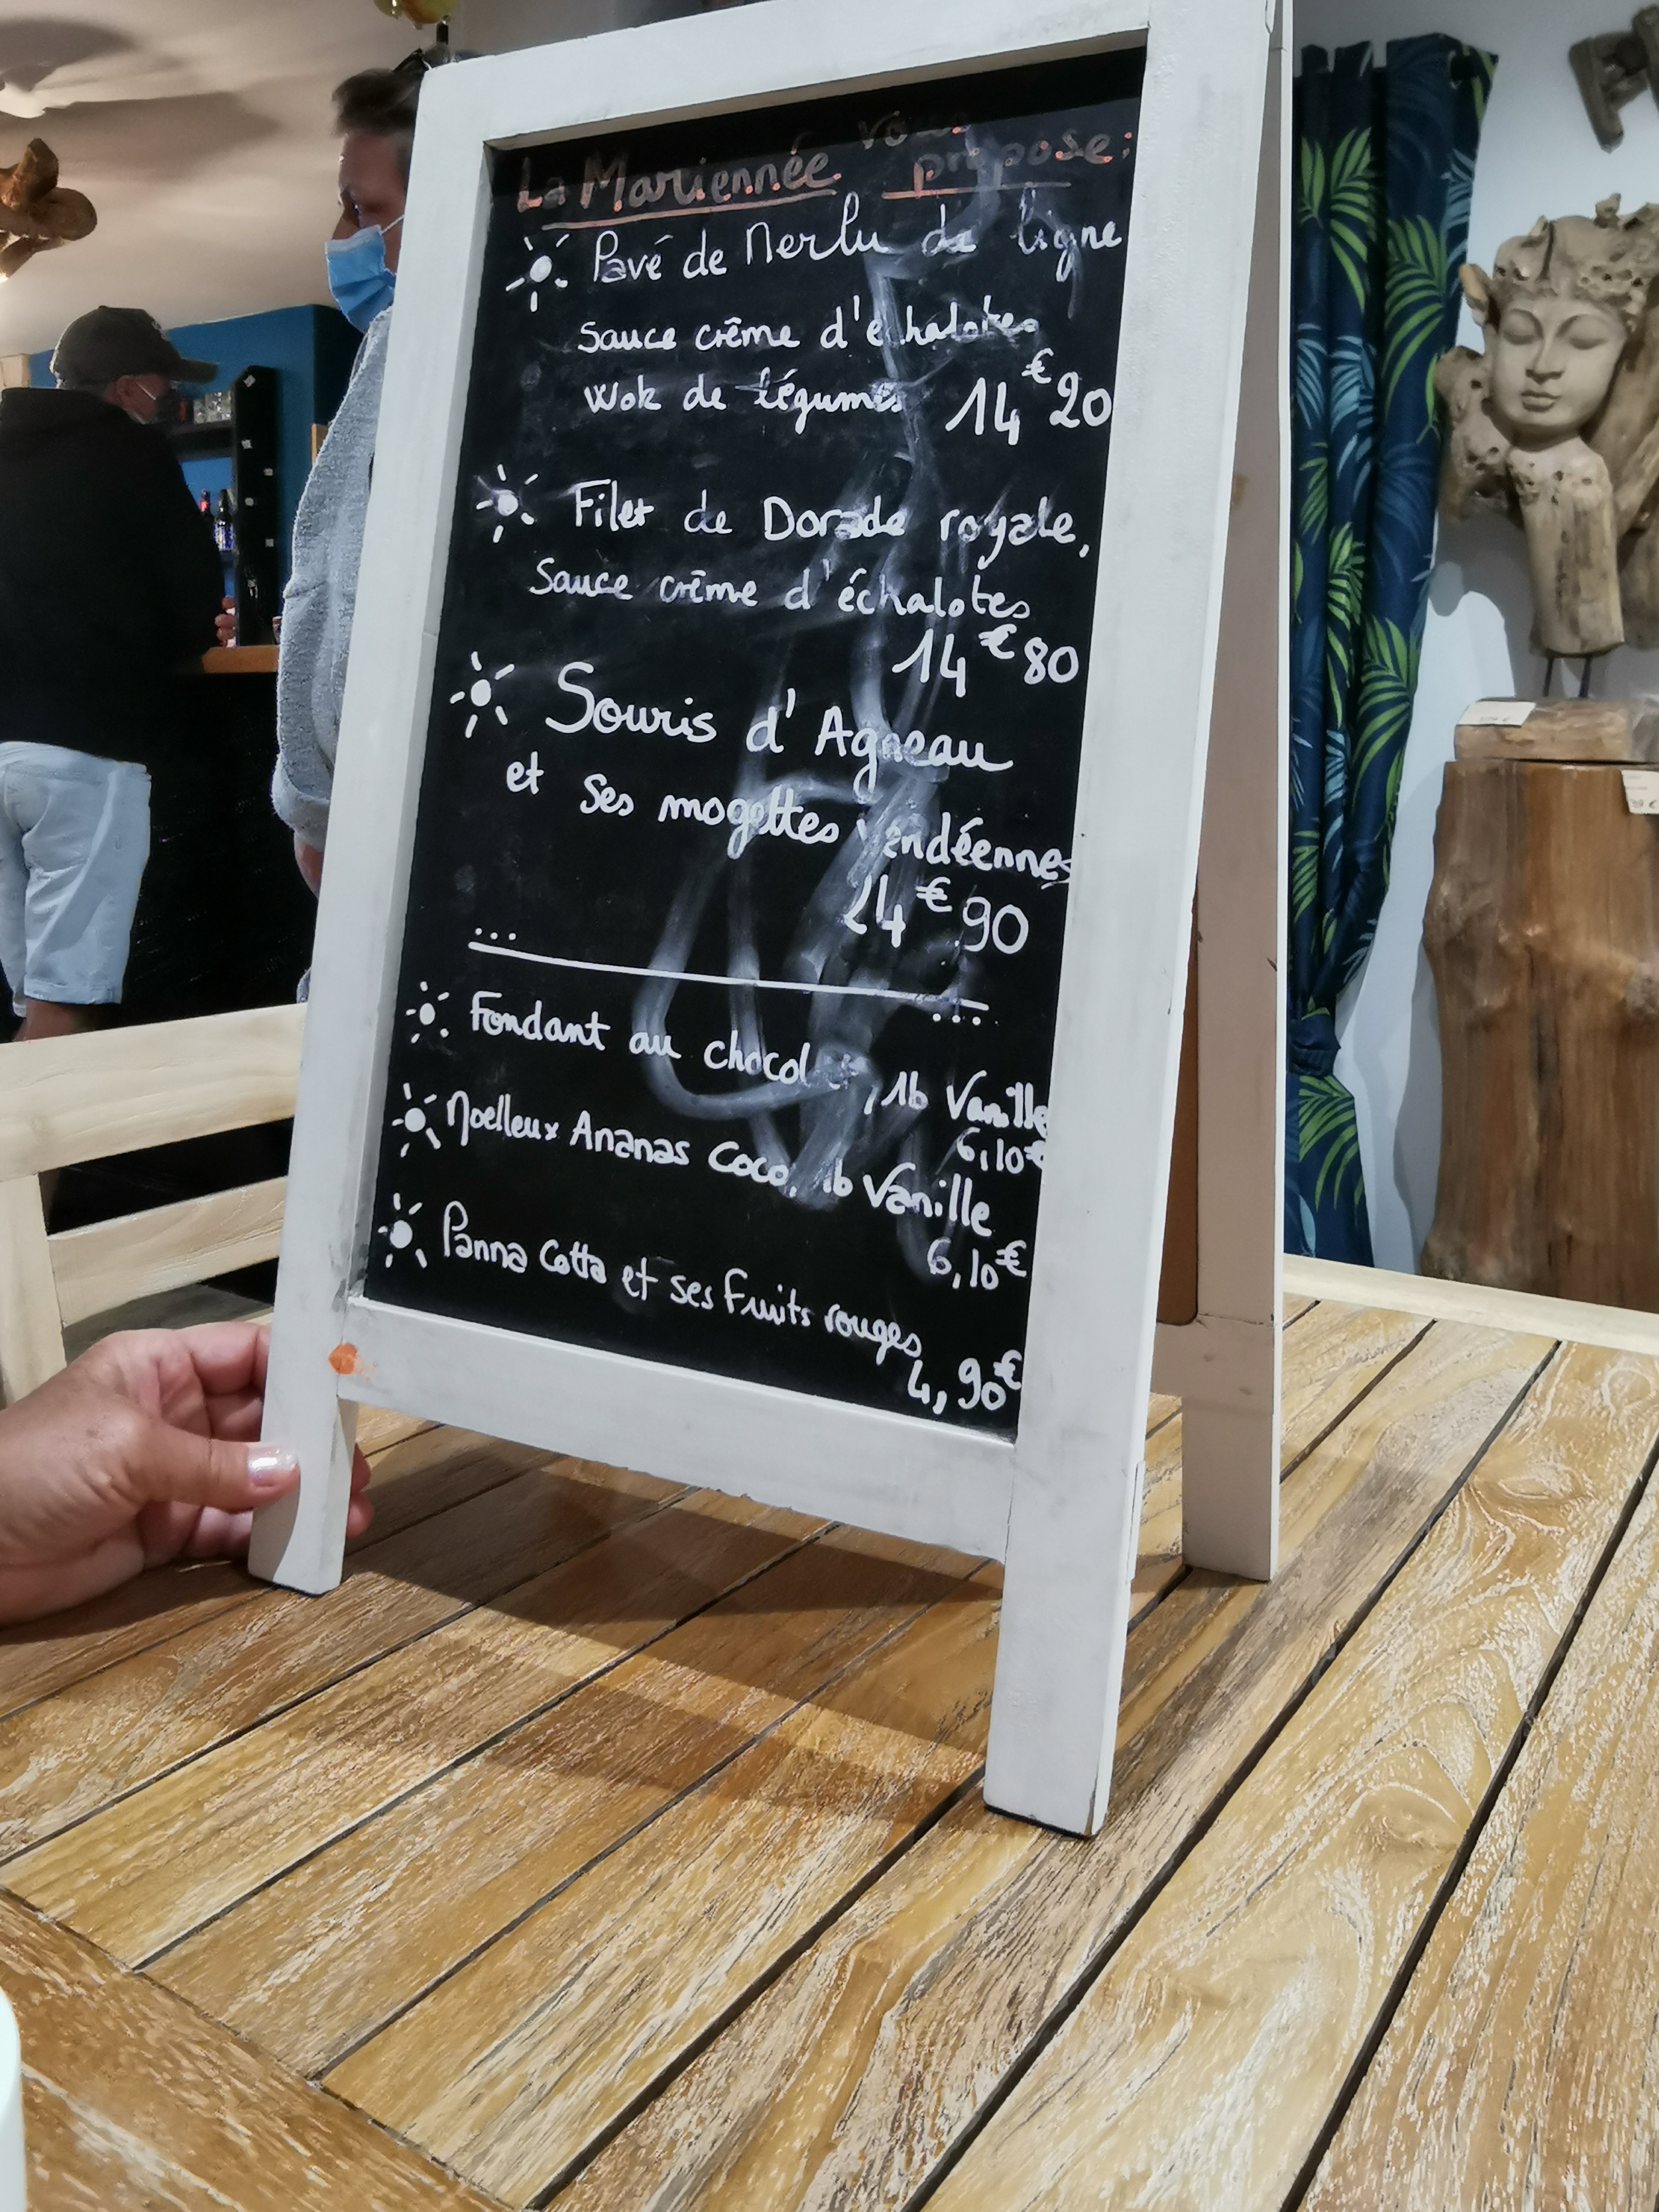 La Mariennée vous
propose:
Pavé de Merlu de ligne
Sauce crème d'échalotes
Wok de légumes 14€20
Filet de Dorade royale,
Sauce crème d'échalotes
14€80
Souris d'Agneau
et ses mogettes vendéennes
24€90
Fondant au chocolat, 1b Vanille
6,10€
Moelleux Ananas Coco, 1b Vanille
6,10€
Panna Cotta et ses fruits rouges
4,90€